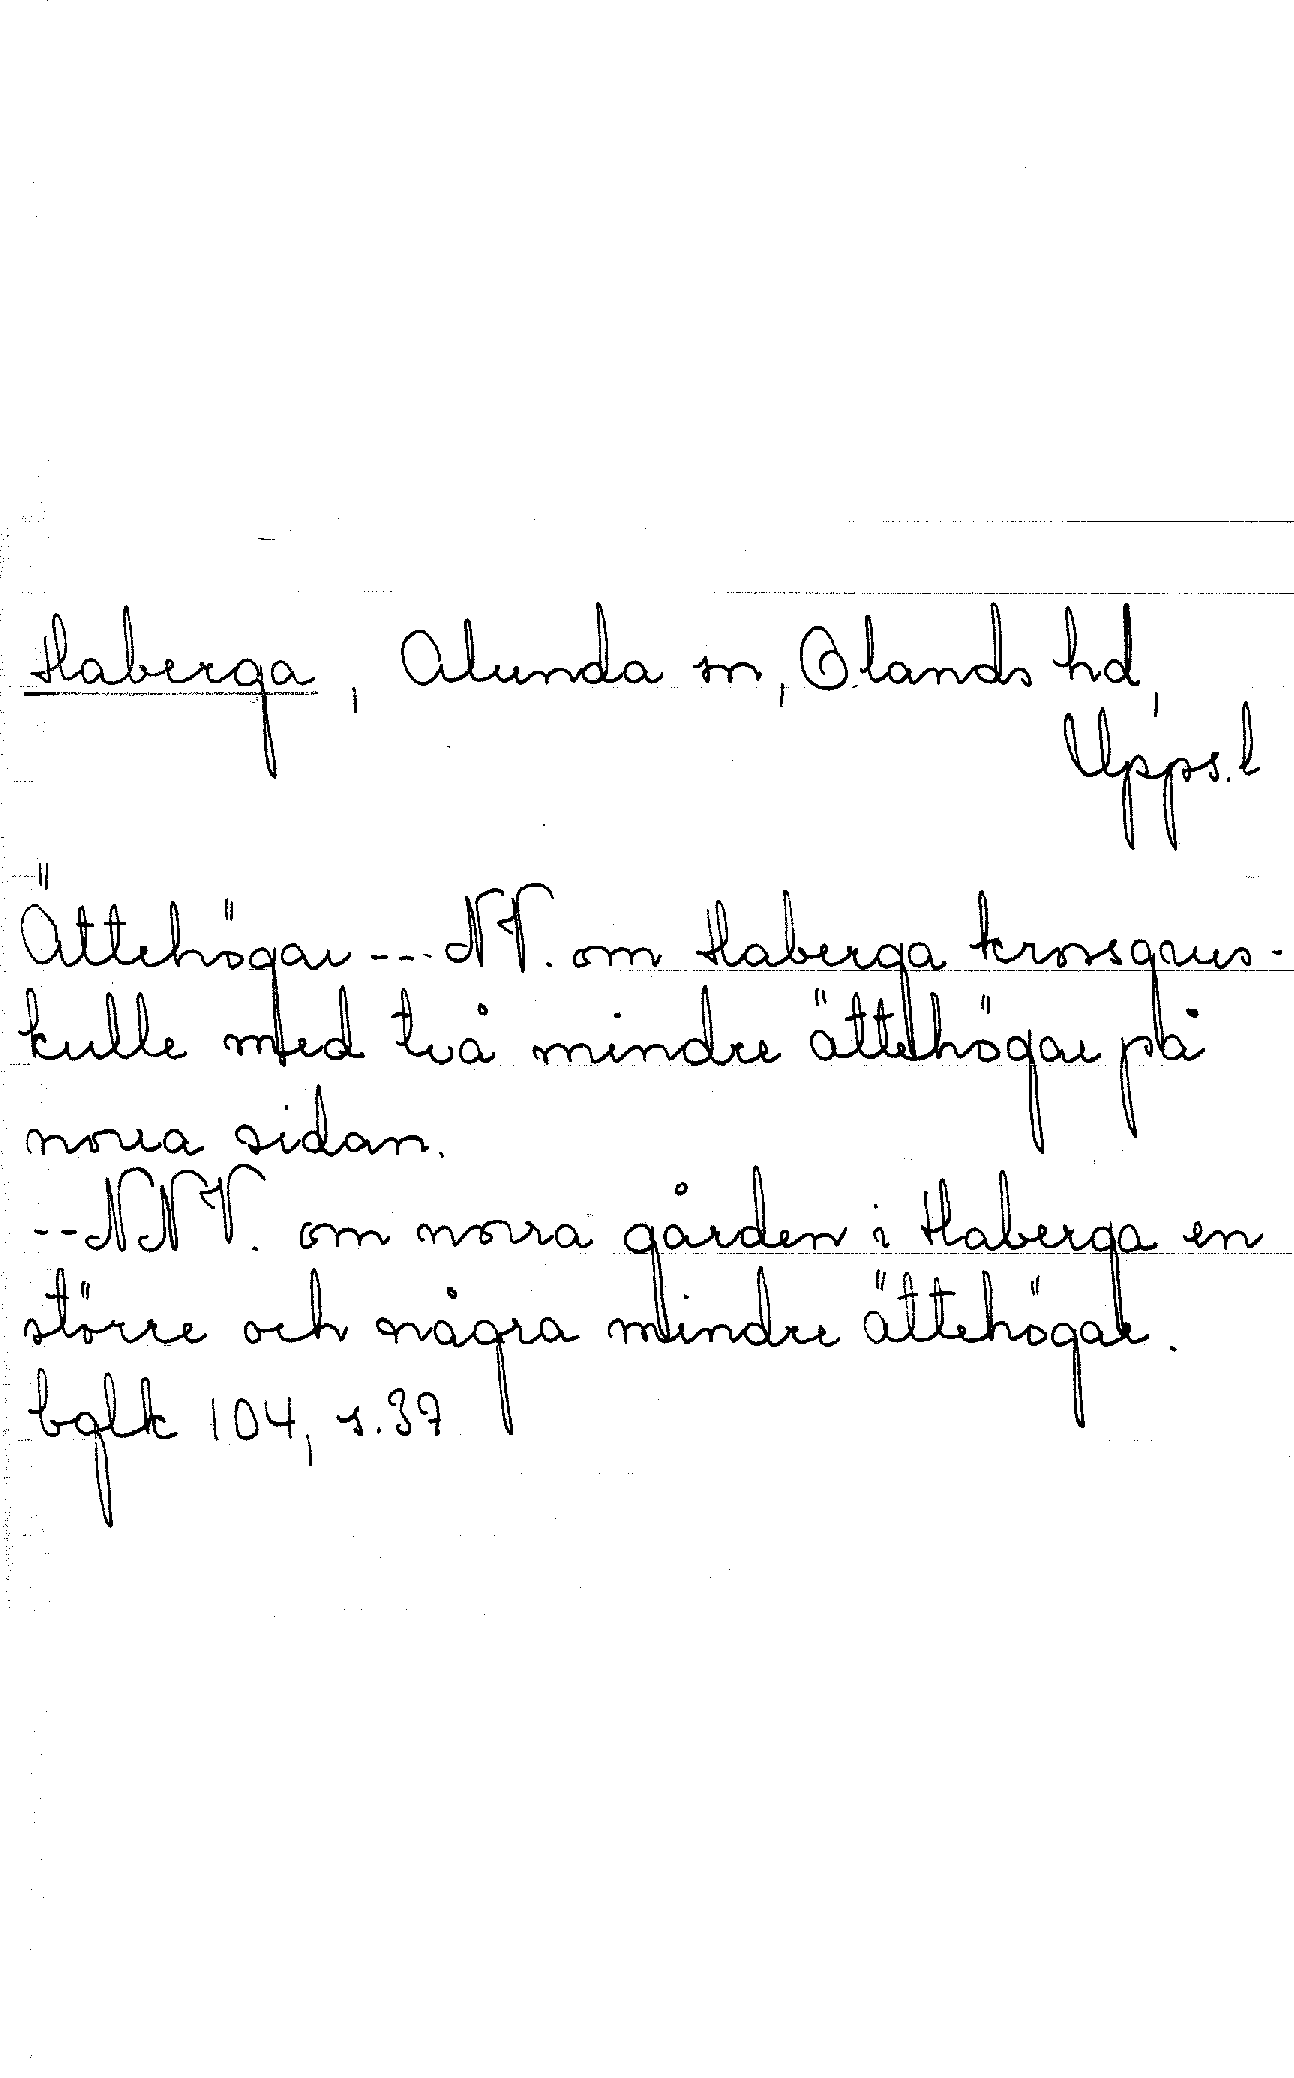 Haberga, Alunda sn, Olands hd,
Upps. l
Ättehögar --- NV. om Haberga krossgrus-
kulle med två mindre ättehögar på
norra sidan.
-- NNV. om norra gården i Haberga en
större och några mindre ättehögar.
bglk 104, s. 37